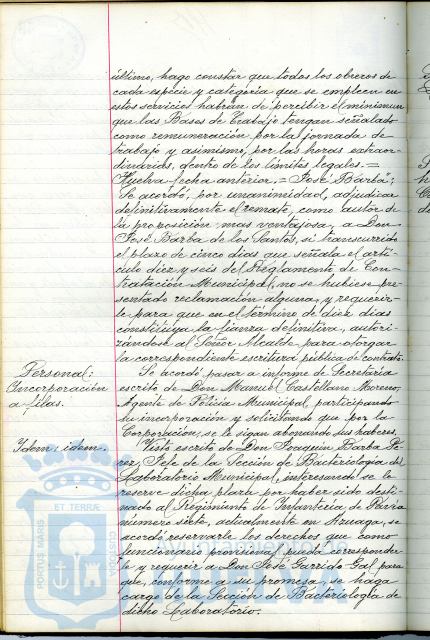 último, hago constar que todos los obreros de
cada especie y categoria que se empleen en
estos servicios habrán de percibir el minimum
que las Bases de Trabajo tengan señalado
como remuneración por la jornada de
trabajo y asimismo, por las horas extraor-
dinarias, dentro de los limites legales.=
Huelva fecha anterior.= José Barba";
Se acordó, por unanimidad, adjudicar
definitivamente el remate, como autor de
la proposición mas ventajosa, a Don
José Barba de los Santos, si transcurrido
el plazo de cinco dias que señala el arti-
culo diez y seis del Reglamento de Con-
tratación Municipal, no se hubiese pre-
sentado reclamación alguna, y requerir-
le para que en el término de diez dias
constituya la fianza definitiva, autori-
zándose al Señor Alcalde para otorgar
la correspondiente escritura pública de contrato.
Personal:
Incorporación
a filas.
Se acordó pasar a informe de Secretaria
escrito de Don Manuel Castellano Moreno,
Agente de Policia Municipal, participando
su incorporación y solicitando que por la
Corporación, se le sigan abonando sus haberes.
Idem: idem.
Visto escrito de Don Joaquin Barba Pé-
rez, Jefe de la Sección de Bacteriologia del
Laboratorio Municipal, interesando se le
reserve dicha plaza por haber sido desti-
nado al Regimiento de Infanteria de Parra
número siete, actualmente en Azuaga, se
acordó reservarle los derechos que como
funcionario provisional pueda corresponder-
le y requerir a Don José Garrido Gal para
que, conforme a su promesa, se haga
cargo de la Sección de Bacteriologia de
dicho Laboratorio.
PORTUS MARIS ET TERRÆ CUSTODIA
Ayuntamiento
HUELVA